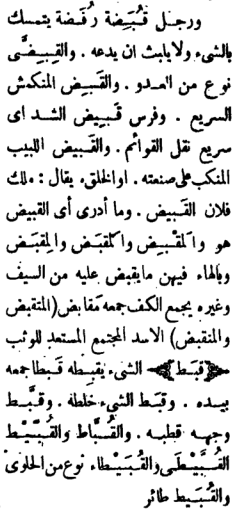 ورجل قُبَيضة رُفَضة يتمسك
بالشيء ولايلبث ان يدعه . والقِبِيضَّى
نوع من العدو . والقَبيض المنكمش
السريع . وفرس قَبيض الشد اى
سريع نقل القوائم . والقَبيض اللبيب
المنكب على صنعته . اوالخلق، يقال : ملك
فلان القَبيض . وما أدرى أى القَبيض
هو والمَقْبِض والمَقبَض والمِقبَض
وبالهاء فيهن مايقبض عليه من السيف
وغيره بجمع الكف جمعه مقابض (المتقبض
والمنقبض) الاسد المجتمع المستعد للوثب
﴿قبَط﴾ الشئَ يَقبِطه قَبطا جمعه
بيده . وقبَط الشيءَ خلطه . وقبَّط
وجهه قطبه . والقُبَّاط والقُبَّيْط
القُبَّيْطَى والقُبَيْطاء نوع من الحلوى
والقُبَيط طائر